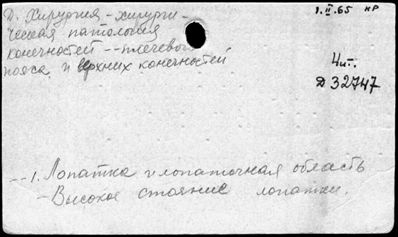 Д. Хирургия - хирурги-
ческая патология
конечностей -- плечевого
пояса и верхних конечностей
1.II.65 кр
Чит.
Д 32747
--1. Лопатка и лопаточная область
- Высокое стояние лопатки.